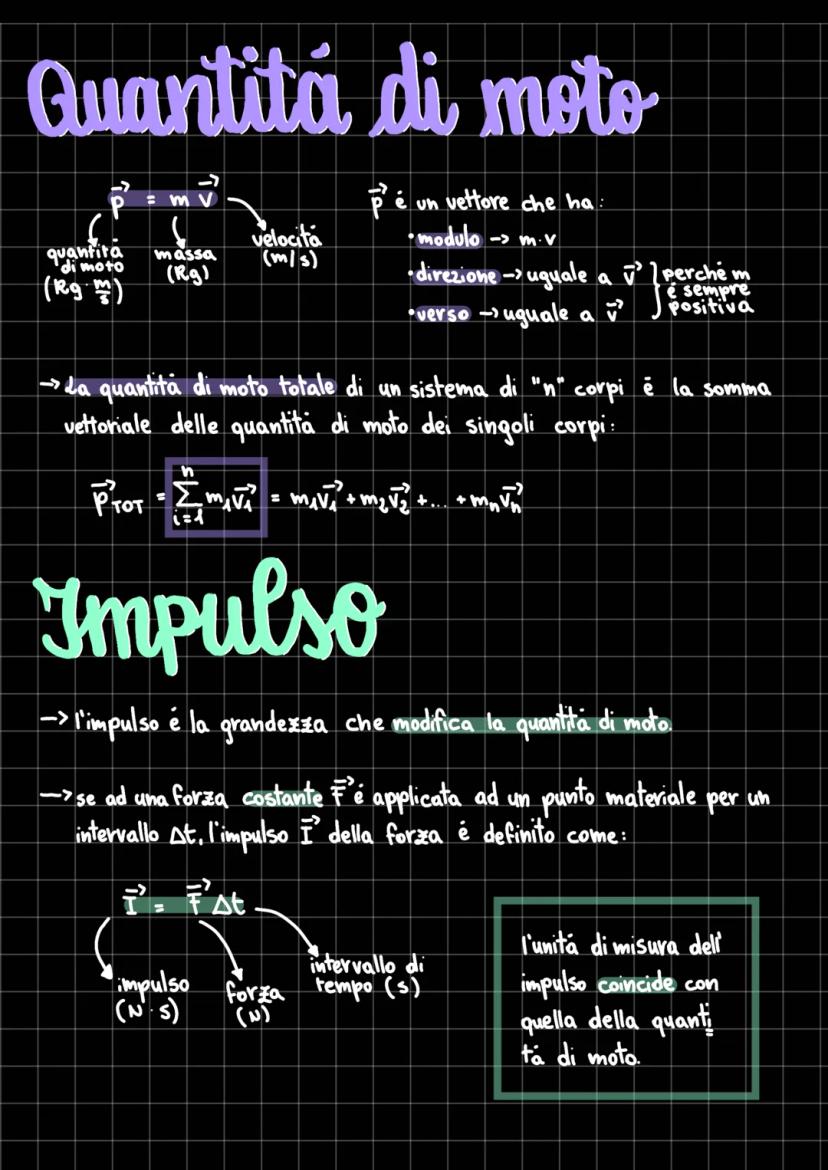 Quantitá di moto
p⃗ = m v⃗
quantitá
di moto
(Kg · m/s)
massa
(Kg)
velocitá
(m/s)
p⃗ é un vettore che ha:
• modulo -> m·v
• direzione -> uguale a v⃗
• verso -> uguale a v⃗
perché m
é sempre
positiva
-> La quantitá di moto totale di un sistema di "n" corpi é la somma
vettoriale delle quantitá di moto dei singoli corpi:
p⃗TOT = n∑i=1 m₁v⃗₁ = m₁v⃗₁ + m₂v⃗₂ + ... + mₙv⃗ₙ
Impulso
-> l'impulso é la grandezza che modifica la quantitá di moto.
-> se ad una forza costante F⃗ é applicata ad un punto materiale per un
intervallo Δt, l'impulso I⃗ della forza é definito come:
I⃗ = F⃗ Δt
impulso
(N·s)
forza
(N)
intervallo di
tempo (s)
l'unitá di misura dell'
impulso coincide con
quella della quanti
tá di moto.